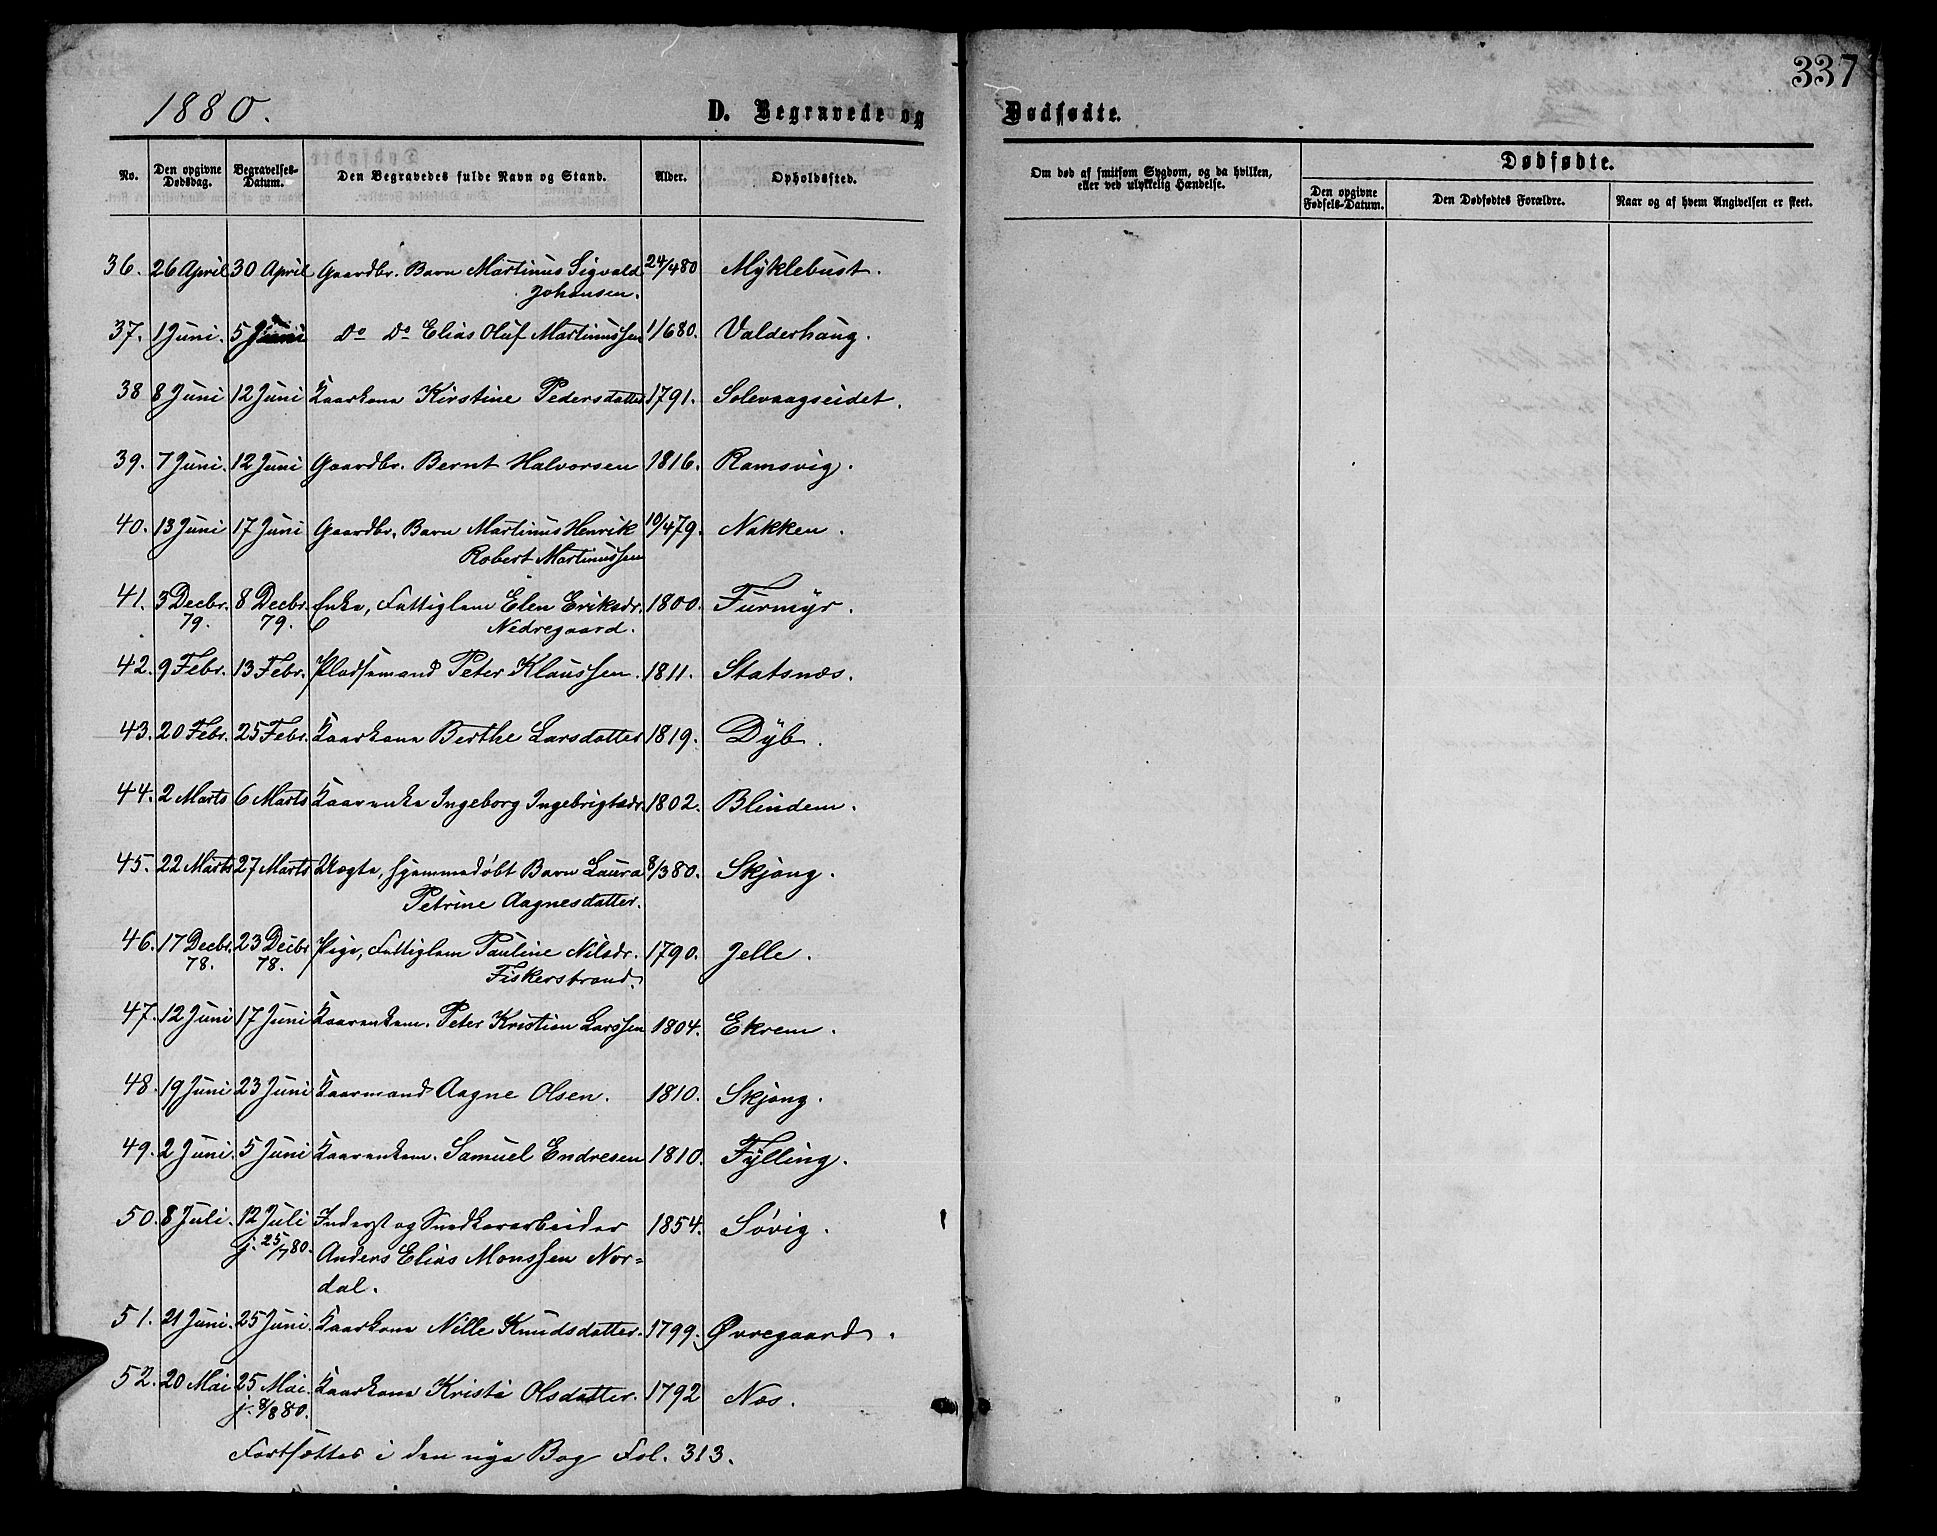 337
1880.
D. Begravede og Dødfødte.
No. Den opgivne Dødsdag. Begravelses-Datum. Den Begravedes fulde Navn og Stand. Alder. Opholdssted. Om død af smitsom Sygdom, og da hvilken, eller ved ulykkelig Hændelse. Dødfødte.
Den opgivne Fødsels-Datum. Den Dødfødtes Forældre. Naar og af hvem Angivelsen er skeet.
36. 26 April 30 April Gaardbr. Barn Martinus Sigvald 24/4 80 Myklebust.
Johansen.
37. 1 Juni. 5 Juni Do Do Elias Oluf Martinussen 1/6 80. Valderhaug.
38 8 Juni 12 Juni Kaarkona Kirstine Pedersdatter 1791. Solevaagseidet.
39. 7 Juni. 12 Juni Gaardbr. Bernt Halvorsen 1816. Ramsvig.
40. 13 Juni 17 Juni Gaardbr. Barn Martinus Henrik 10/4 79. Nakken.
Robert Martinussen
41. 3 Decbr. 8 Decbr. Enke, Fattiglem Elen Eriksdr. 1800. Furmyr.
79. 79. Nedregaard.
42. 9 Febr. 13 Febr. Pladsemand Peter Klaussen. 1811. Statsnæs.
43. 20 Febr. 25 Febr. Kaarkona Berthe Larsdatter 1819. Dyb.
44. 2 Marts 6 Marts Kaarenke Ingeborg Ingebrigtsdr. 1802. Blindem.
45. 22 Marts 27 Marts Uægte, hjemmedøbt Barn Laura 8/3 80. Skjong.
Petrine Aagnesdatter.
46. 17 Decbr. 23 Decbr Pige, Fattiglem Pauline Nilsdr. 1790. Jelle.
78. 78. Fiskerstrand.
47. 12 Juni 17 Juni Kaarenkem. Peter Kristian Larssen 1804. Ekrem.
48. 19 Juni 23 Juni Kaarmand Aagne Olsen. 1810. Skjong.
49. 2 Juni. 5 Juni Kaarenkem. Samuel Endresen 1810. Fylling.
50. 8 Juli. 12 Juli Inderst og Snedkerarbeider 1854. Søvig.
j. 25/7 80. Anders Elias Monssen Nor=
dal.
51. 21 Juni. 25 Juni. Kaarkona Nille Knudsdatter. 1799. Øvregaard.
52. 20 Mai 25 Mai. Kaarkona Kristi Olsdatter. 1792 Nos.
j. 8/8 80.
Fortsættes i den nye Bog Fol. 313.